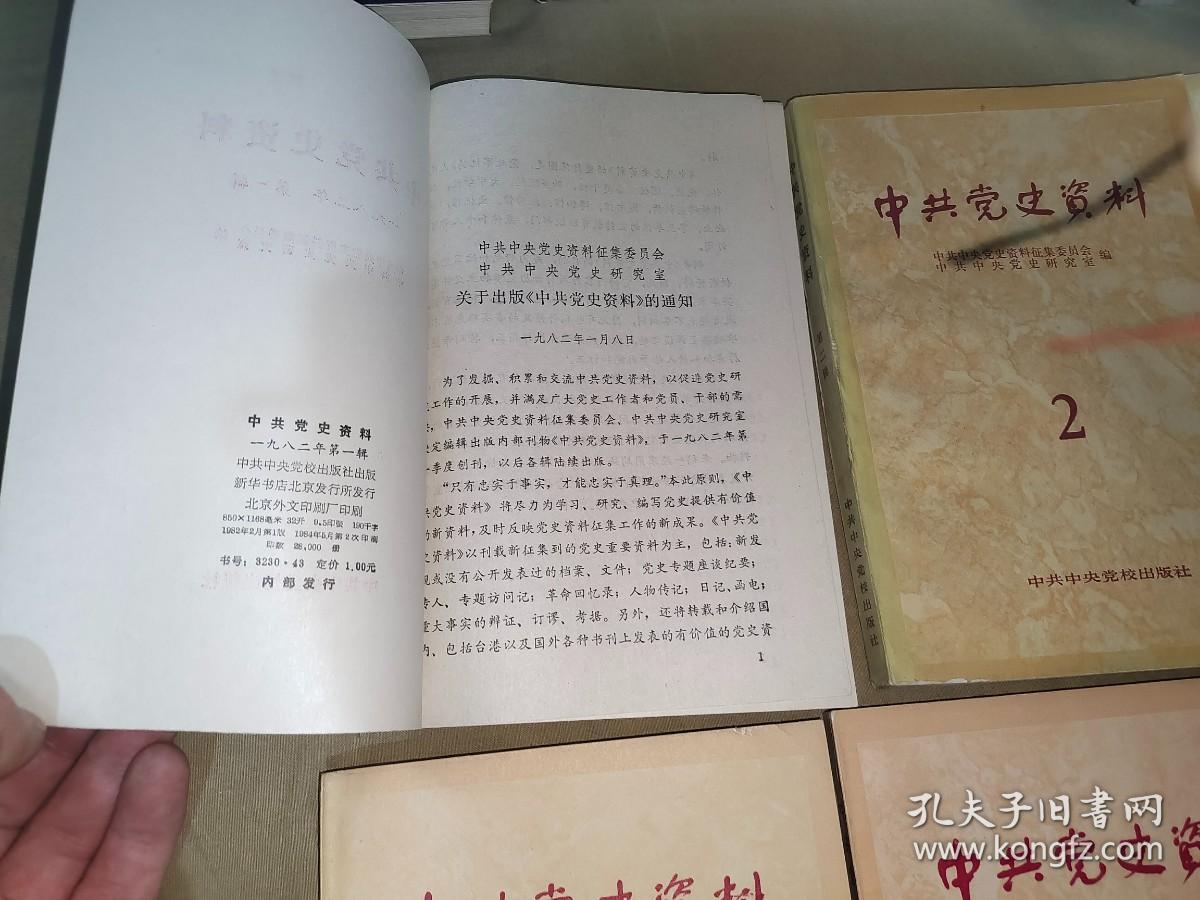 中共党史资料
一九八二年第一辑
中共中央党校出版社出版
新华书店北京发行所发行
北京外文印刷厂印刷
850×1168毫米 32开 9.5印张 190千字
1982年2月第1版 1984年5月第2次印刷
印数 28,000 册
书号：3230·43 定价 1.00元
内部发行
中共中央党史资料征集委员会
中共中央党史研究室
关于出版《中共党史资料》的通知
一九八二年一月八日
为了发掘、积累和交流中共党史资料，以促进党史研
工作的开展，并满足广大党史工作者和党员、干部的需
，中共中央党史资料征集委员会、中共中央党史研究室
定编辑出版内部刊物《中共党史资料》，于一九八二年第
季度创刊，以后各辑陆续出版。
“只有忠实于事实，才能忠实于真理。”本此原则，《中
共党史资料》将尽力为学习、研究、编写党史提供有价值
的新资料，及时反映党史资料征集工作的新成果。《中共党
史资料》以刊载新征集到的党史重要资料为主，包括：新发
现或没有公开发表过的档案、文件；党史专题座谈纪要；
专人、专题访问记；革命回忆录；人物传记；日记、函电；
重大事实的辨证、订谬、考据。另外，还将转载和介绍国
内、包括台港以及国外各种书刊上发表的有价值的党史资
1
中共党史資料
中共中央党史资料征集委员会
中共中央党史研究室 编
2
中共中央党校出版社
中共中央党校出版社
中共党史資料
中共党史資
孔夫子旧书网
www.kongfz.com